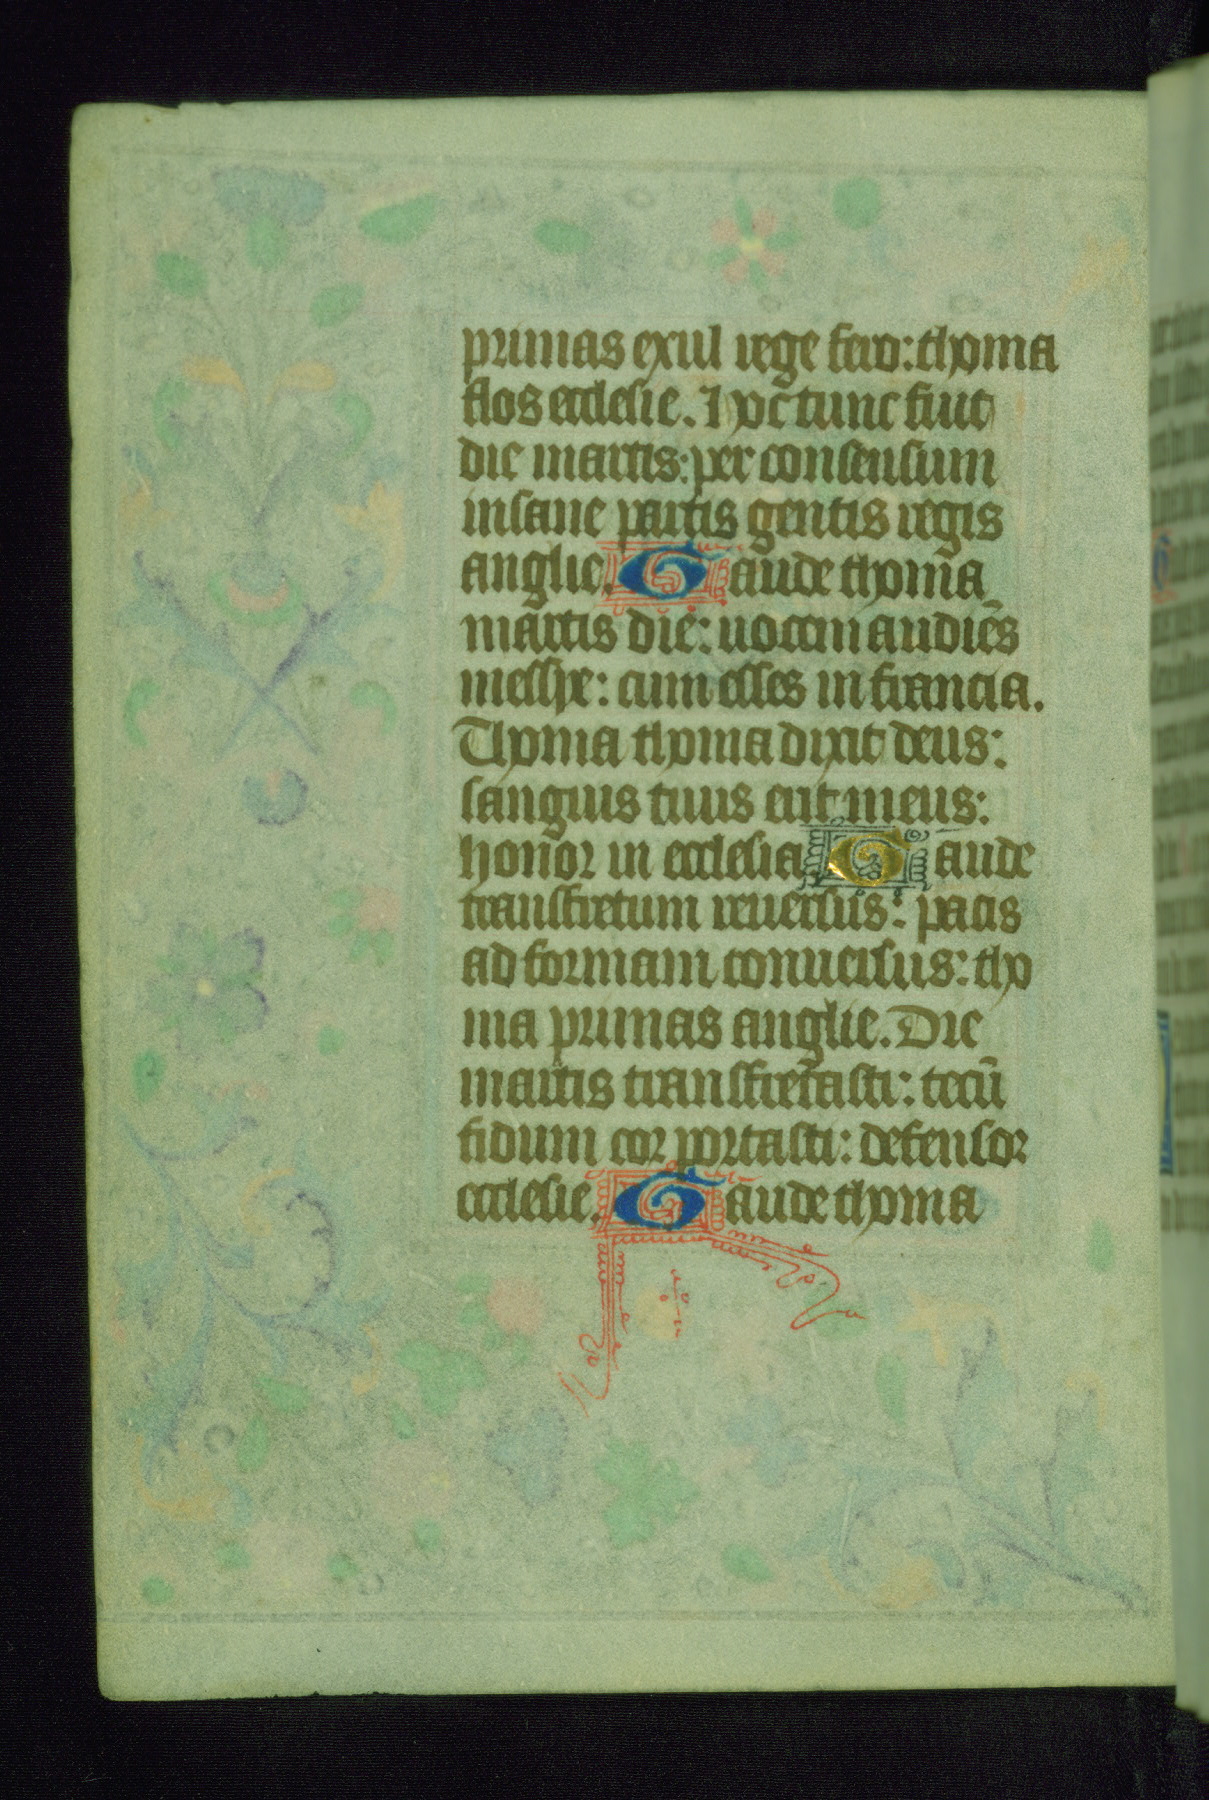 primas exul rege fero: thoma
flos ecclesie. Hoc̄ tunc fuit
die martis: per consensum
insane partis gentis regis
anglie. Gaude thoma
martis die: uocem audiēs
messye: cum esses in francia.
Thoma thoma dixit deus:
sanguis tuus erit meus:
honor in ecclesia. Gaude
transfretum reuersus: pacis
ad formam conuersus: tho
ma primas anglie. Die
martis transfretasti: tecū
fidum cor portasti: defensor
ecclesie. Gaude thoma